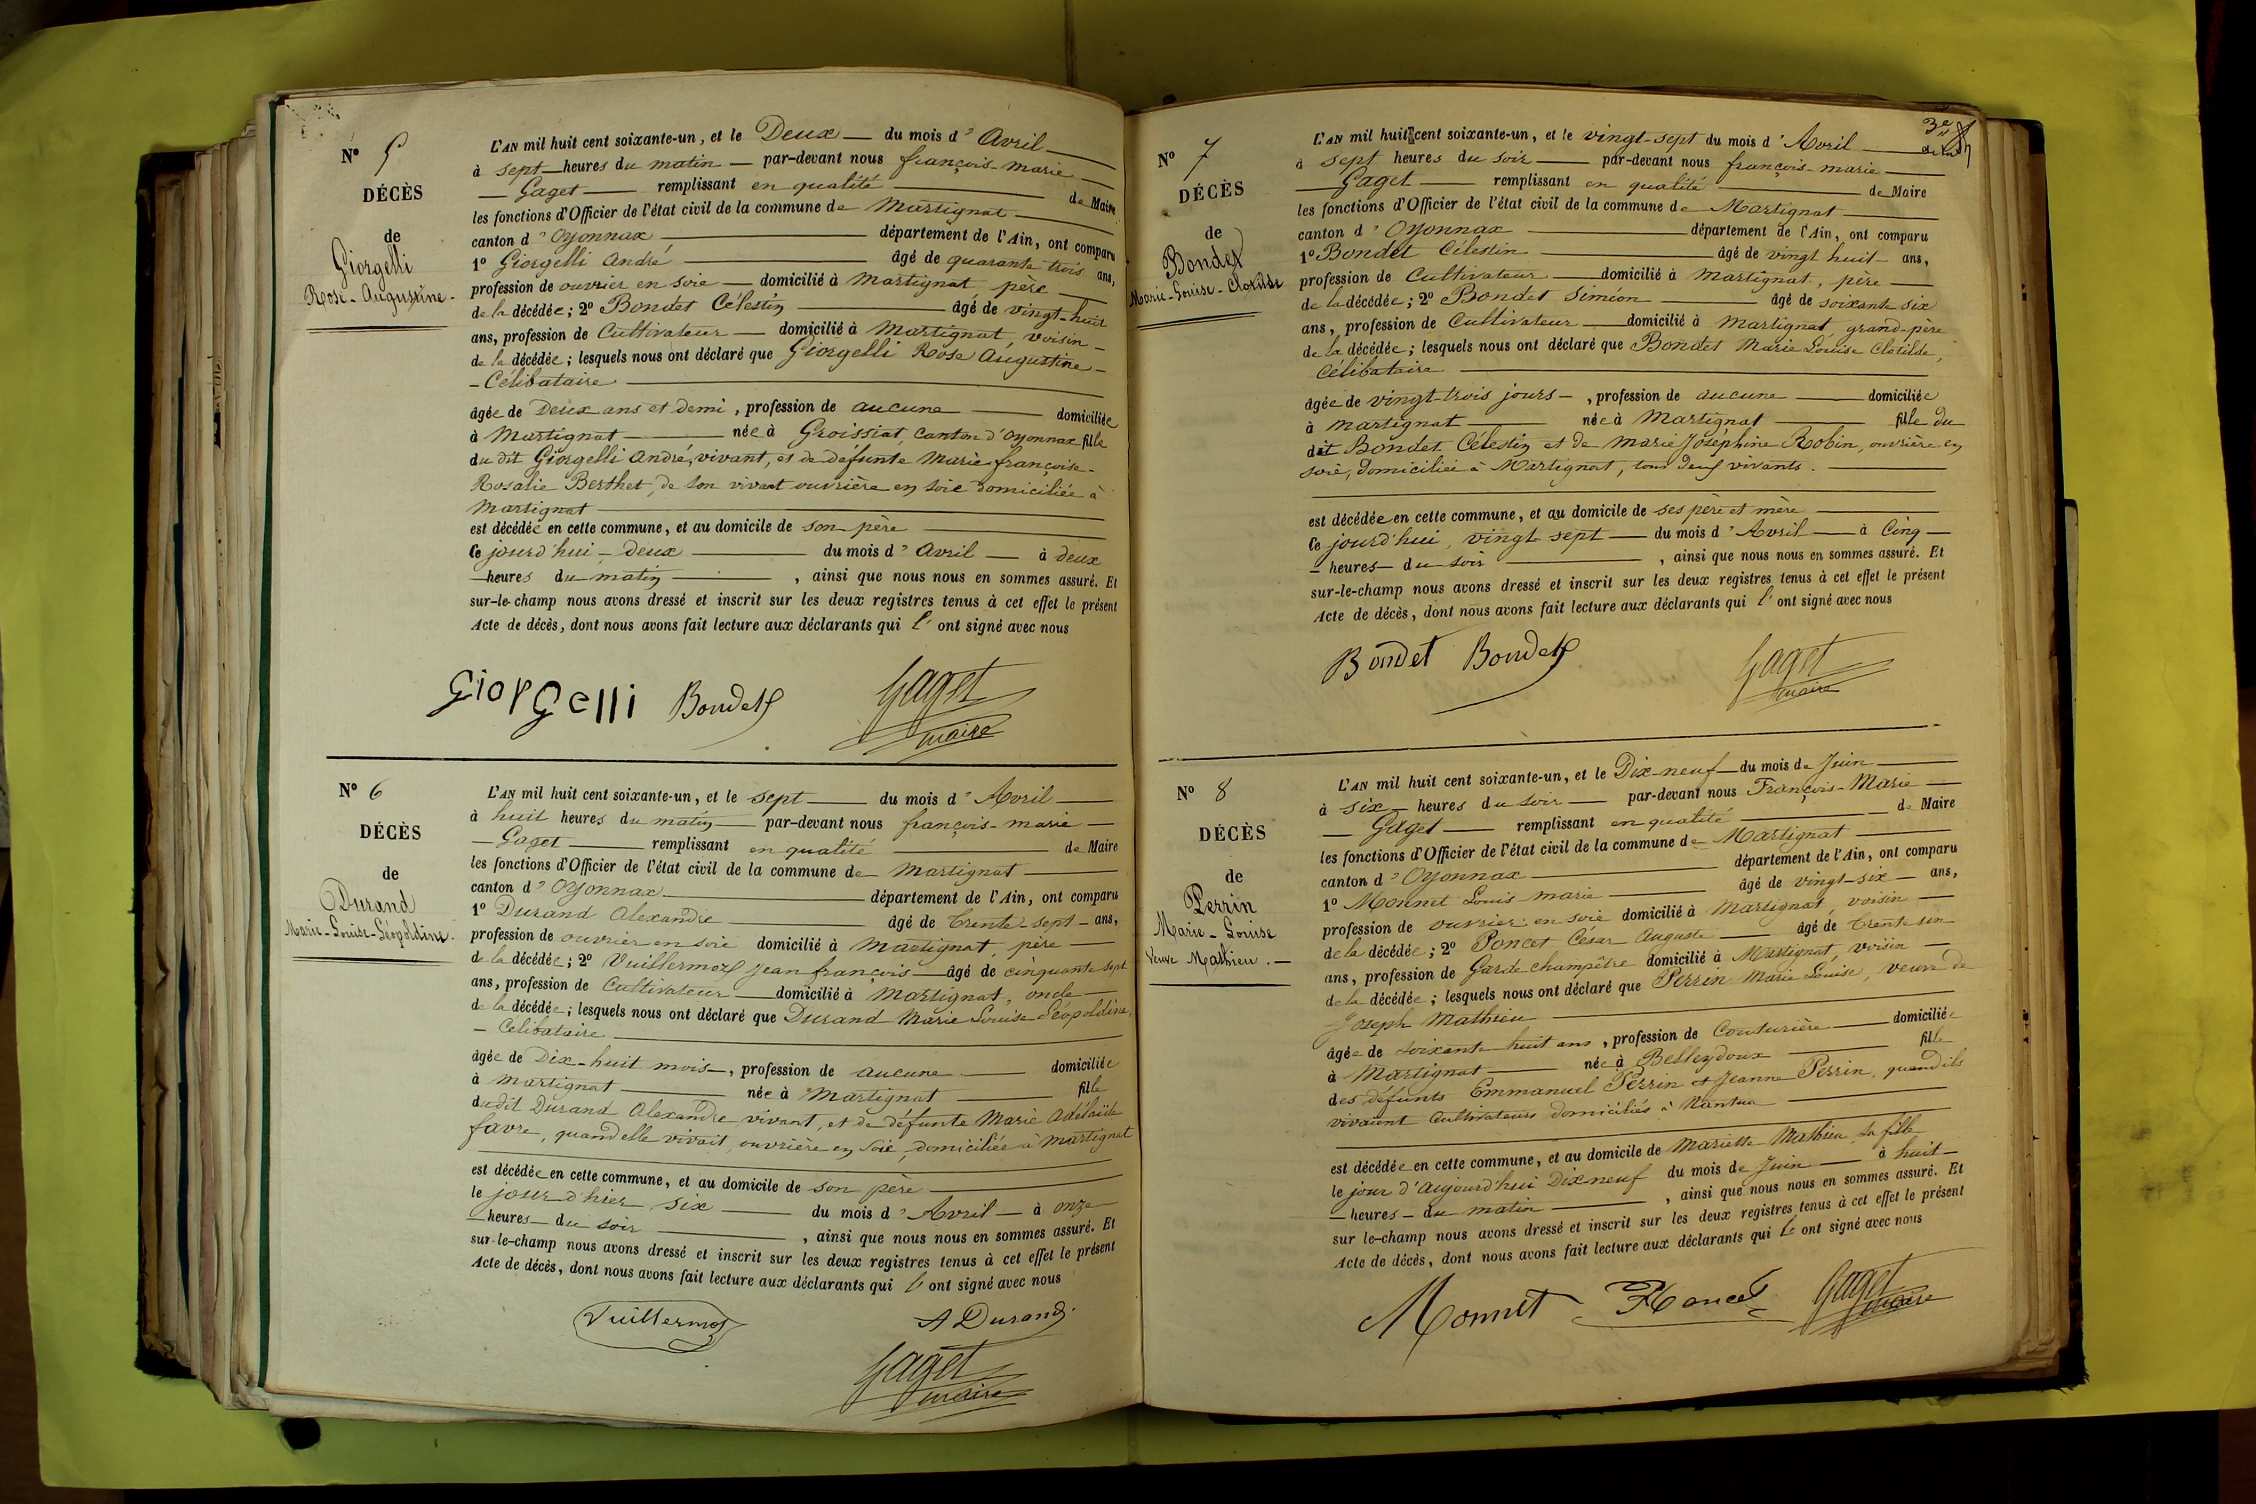 Nº 5
DÉCÈS
de
Giorgelli
Rose-Augustine.
L'AN mil huit cent soixante-un, et le Deux du mois d'Avril
à sept heures du matin par-devant nous françois-marie
Gaget remplissant en qualité de Maire
les fonctions d'Officier de l'état civil de la commune de Martignat
canton d'Oyonnax département de l'Ain, ont comparu
1º Giorgelli André âgé de quarante trois ans,
profession de ouvrier en soie domicilié à Martignat père
de la décédée; 2º Bondet Célestin âgé de vingt-huit
ans, profession de Cultivateur domicilié à Martignat, voisin
de la décédée; lesquels nous ont déclaré que Giorgelli Rose Augustine
Célibataire
âgée de Deux ans et demi, profession de aucune domiciliée
à Martignat née à Groissiat, canton d'Oyonnax fille
du dit Giorgelli André, vivant, et de défunte Marie françoise
Rosalie Berthet, de son vivant ouvrière en soie domiciliée à
Martignat
est décédée en cette commune, et au domicile de son père
Ce jourd'hui deux du mois d'Avril à deux
heures du matin, ainsi que nous nous en sommes assuré. Et
sur-le-champ nous avons dressé et inscrit sur les deux registres tenus à cet effet le présent
Acte de décès, dont nous avons fait lecture aux déclarants qui l'ont signé avec nous
Giorgelli Bondet Gaget
maire
Nº 6
DÉCÈS
de
Durand
Marie-Louise-Léopoldine.
L'AN mil huit cent soixante-un, et le sept du mois d'Avril
à huit heures du matin par-devant nous françois-marie
Gaget remplissant en qualité de Maire
les fonctions d'Officier de l'état civil de la commune de Martignat
canton d'Oyonnax département de l'Ain, ont comparu
1º Durand Alexandre âgé de trente-sept ans,
profession de ouvrier en soie domicilié à Martignat, père
de la décédée; 2º Vuillermoz Jean françois âgé de cinquante sept
ans, profession de Cultivateur domicilié à Martignat, oncle
de la décédée; lesquels nous ont déclaré que Durand Marie Louise Léopoldine,
Célibataire
âgée de Dix-huit mois, profession de aucune domiciliée
à Martignat née à Martignat fille
du dit Durand Alexandre vivant, et de défunte Marie Adélaïde
favre, quand elle vivait, ouvrière en soie, domiciliée à Martignat
est décédée en cette commune, et au domicile de son père
le jour d'hier six du mois d'Avril à onze
heures du soir, ainsi que nous nous en sommes assuré. Et
sur-le-champ nous avons dressé et inscrit sur les deux registres tenus à cet effet le présent
Acte de décès, dont nous avons fait lecture aux déclarants qui l'ont signé avec nous
Vuillermoz A Durand
Gaget
maire
3e
Nº 7
DÉCÈS
de
Bondet
Marie-Louise-Clotilde
L'AN mil huit cent soixante-un, et le vingt-sept du mois d'Avril
à sept heures du soir par-devant nous françois-marie
Gaget remplissant en qualité de Maire
les fonctions d'Officier de l'état civil de la commune de Martignat
canton d'Oyonnax département de l'Ain, ont comparu
1º Bondet Célestin âgé de vingt huit ans,
profession de Cultivateur domicilié à Martignat, père
de la décédée; 2º Bondet Siméon âgé de soixante six
ans, profession de Cultivateur domicilié à Martignat, grand-père
de la décédée; lesquels nous ont déclaré que Bondet Marie Louise Clotilde,
Célibataire
âgée de vingt-trois jours, profession de aucune domiciliée
à Martignat née à Martignat fille du
dit Bondet Célestin et de Marie Joséphine Robin, ouvrière en
soie, domiciliée à Martignat, tous deux vivants.
est décédée en cette commune, et au domicile de ses père et mère
Ce jourd'hui, vingt sept du mois d'Avril à Cinq
heures du soir, ainsi que nous nous en sommes assuré. Et
sur-le-champ nous avons dressé et inscrit sur les deux registres tenus à cet effet le présent
Acte de décès, dont nous avons fait lecture aux déclarants qui l'ont signé avec nous
Bondet Bondet Gaget
maire
Nº 8
DÉCÈS
de
Perrin
Marie-Louise
Veuve Mathieu.
L'AN mil huit cent soixante-un, et le Dix-neuf du mois de Juin
à six heures du soir par-devant nous François-Marie
Gaget remplissant en qualité de Maire
les fonctions d'Officier de l'état civil de la commune de Martignat
canton d'Oyonnax département de l'Ain, ont comparu
1º Monnet Louis marie âgé de vingt-six ans,
profession de ouvrier en soie domicilié à Martignat, voisin
de la décédée; 2º Poncet César Auguste âgé de trente un
ans, profession de Garde champêtre domicilié à Martignat, voisin
de la décédée; lesquels nous ont déclaré que Perrin Marie Louise, veuve de
Joseph Mathieu
âgée de soixante huit ans, profession de Couturière domiciliée
à Martignat née à Belleydoux fille
des défunts Emmanuel Perrin et Jeanne Perrin, quand ils
vivaient Cultivateurs domiciliés à Nantua
est décédée en cette commune, et au domicile de Mariette Mathieu, sa fille
le jour d'aujourd'hui Dix neuf du mois de Juin à huit
heures du matin, ainsi que nous nous en sommes assuré. Et
sur le-champ nous avons dressé et inscrit sur les deux registres tenus à cet effet le présent
Acte de décès, dont nous avons fait lecture aux déclarants qui l'ont signé avec nous
Monnet Poncet Gaget
maire